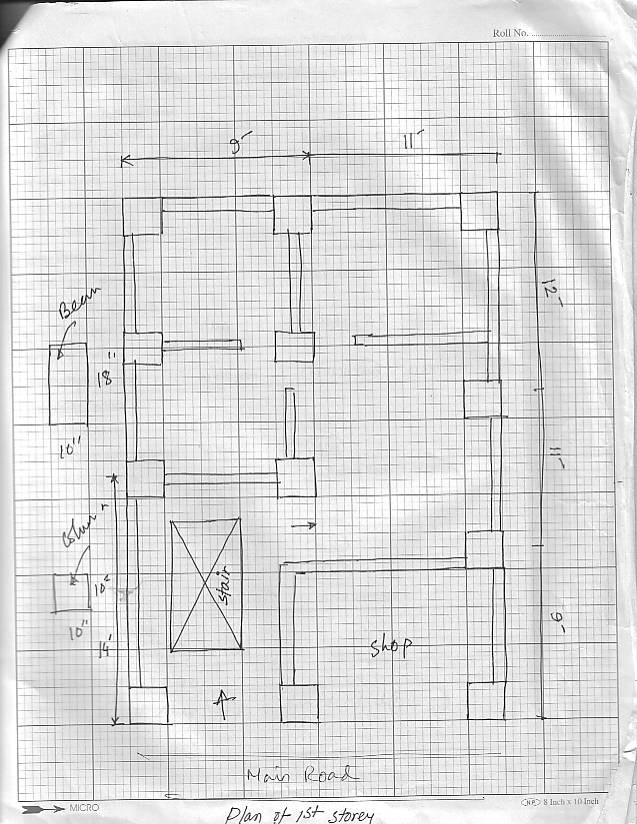 Roll No.
9'
11'
12'
Beam
18"
10"
11'
Column
10"
10"
stair
9'
14'
shop
Main Road
MICRO
NP 8 Inch x 10 Inch
Plan of 1st storey